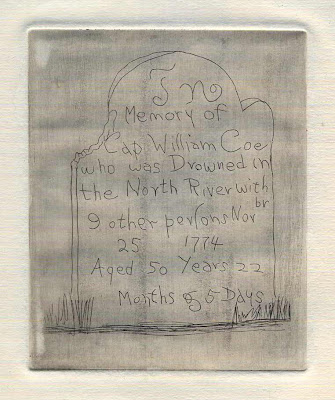 In
Memory of
Cap William Coe
who was Drowned in
the North River with
9 other perſons Novbr
25 1774
Aged 50 Years 22
Months & 5 Days